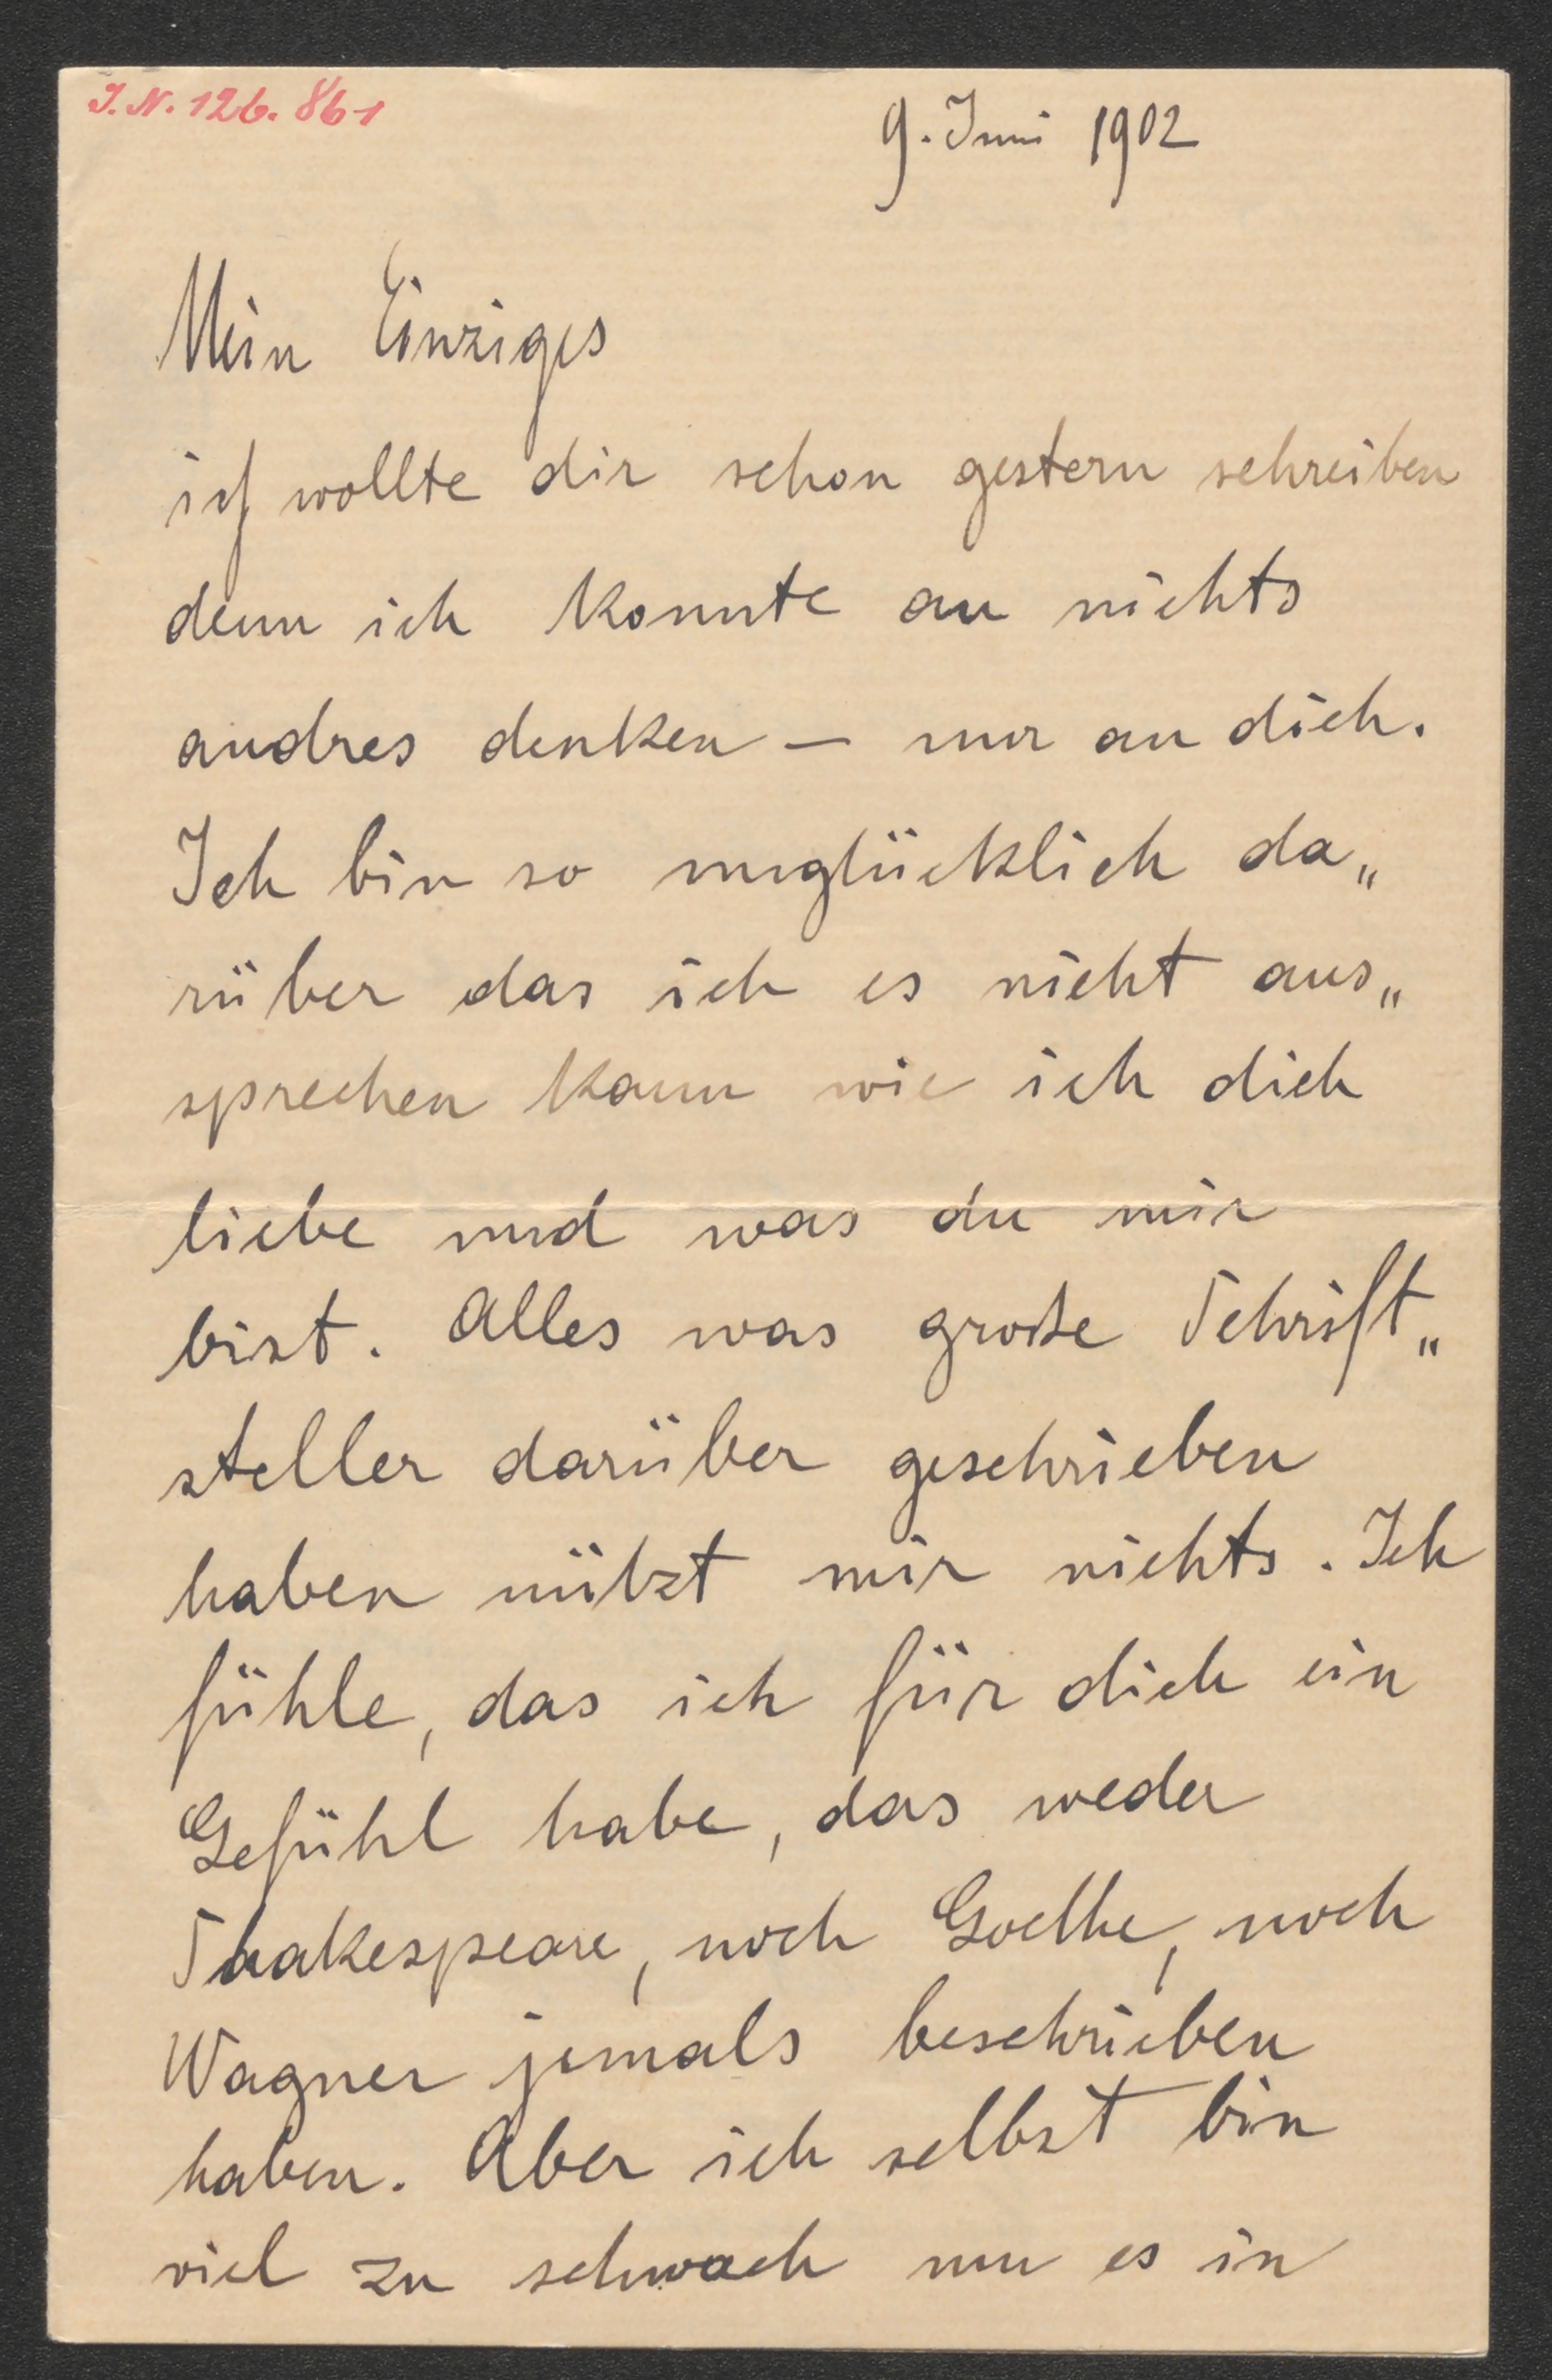 I.N. 126.861
9. Juni 1902
Mein Einziges
ich wollte dir schon gestern schreiben
denn ich konnte an nichts
andres denken — nur an dich.
Ich bin so unglücklich da„
rüber das ich es nicht aus„
sprechen kann wie ich dich
liebe und was du mir
bist. Alles was große Schrift„
steller darüber geschrieben
haben nützt mir nichts. Ich
fühle, das ich für dich ein
Gefühl habe, das weder
Shakespeare, noch Goethe, noch
Wagner jemals beschrieben
haben. Aber ich selbst bin
viel zu schwach um es in